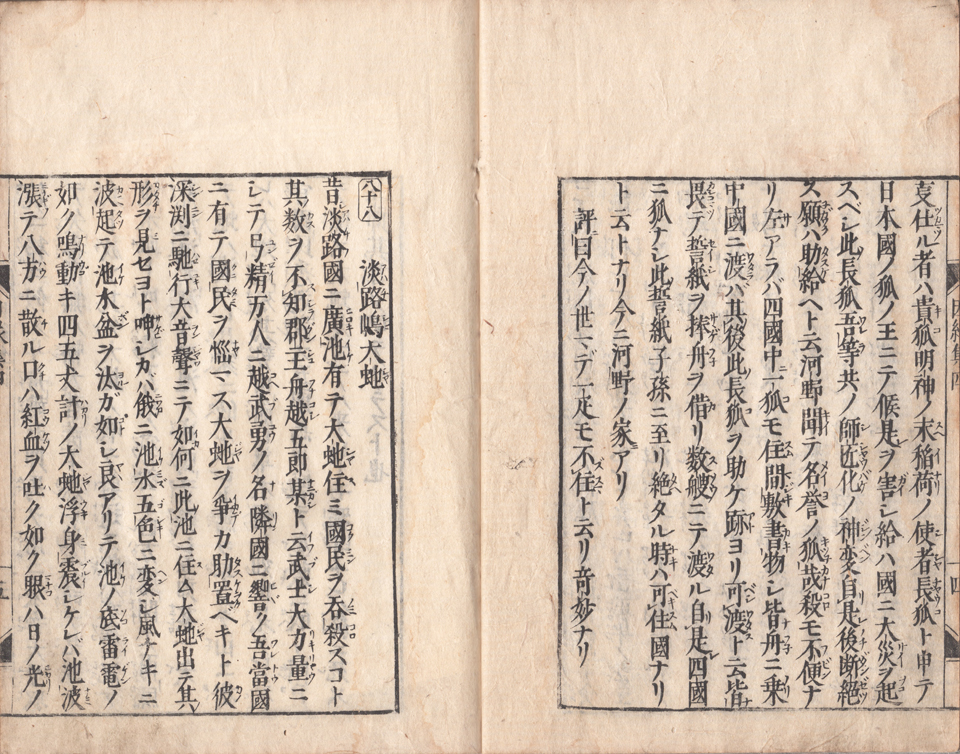 支仕ル者ハ貴狐明神ノ末稲荷ノ使者長狐ト申テ
日本國ノ狐ノ王ニテ候是ヲ害シ給ハ國ニ大災ヲ起
スベシ此長狐吾等共ノ師匠化ノ神変自是後断絶
ス願ハ助給ヘト云河野聞テ名誉ノ狐哉殺モ不便ナ
リ左アラバ四國中ニ一狐モ住間敷書物シ皆舟ニ乗
中國ニ渡ハ其後此長狐ヲ助ケ跡ヨリ可渡ト云皆
畏テ誓紙ヲ捧舟ヲ借リ数艘ニテ渡ル自是四國
ニ狐ナシ此誓紙子孫ニ至リ絶タル時ハ可住國ナリ
ト云トナリ今ニ河野ノ家ニアリ
評曰今ノ世マデ一疋モ不住ト云リ竒妙ナリ
八十八 淡路嶋大虵
昔淡路國ニ廣池有テ大虵住ミ國民ヲ吞殺スコト
其数ヲ不知郡王舟越五郎某ト云武士大力量ニ
シテ弓精万人ニ越武勇ノ名隣國ニ響ク吾當國
ニ有テ國民ヲ悩マス大虵ヲ爭カ助置ベキト彼
深渕ニ馳行大音聲ニテ如何ニ此池ニ住ム大虵出テ其
形ヲ見セヨト呻シカバ俄ニ池水五色ニ変シ風ナキニ
波起テ池水盆ヲ汰ガ如シ良アリテ池ノ底雷電ノ
如ク鳴動キ四五丈計ノ大虵浮身震シケレバ池波
漲テ八方ニ散ル口ハ紅血ヲ吐ク如ク眼ハ日ノ光ノ
十四
五